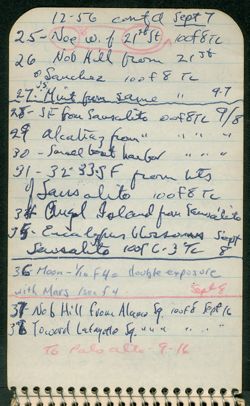 12-56 cont'd Sept 7
25- Noe w. of 21st St 100f8 TC
26 Nob Hill from 21st
& Sanchez 100f8 TC
27- Mint from same " 47
28- SF from Sausalito 100f8TC 9/8
29 Alcatraz from " " " "
30- Sausalito boat harbor " " "
31-32-33 SF from hts
Sausalito 100f8 TC
34 Angel Island from Sausalito
35- Eucalyptus blossoms Sept
Sausalito 100f C-3 TC 8
36 Moon - 1/10 f4 = double exposure
with Mars f4 Sept 9
37 Nob Hill from Alamo Sq. 100f8 Sept 16
38 Toward Lafayette Sq " " " "
To Palo Alto - 9-16